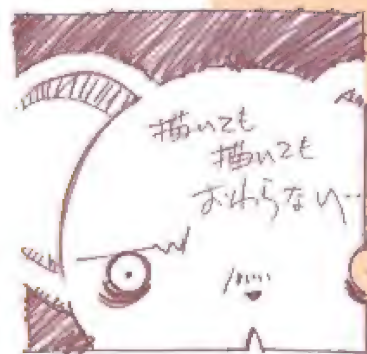 描いても
描いても
おわらない…